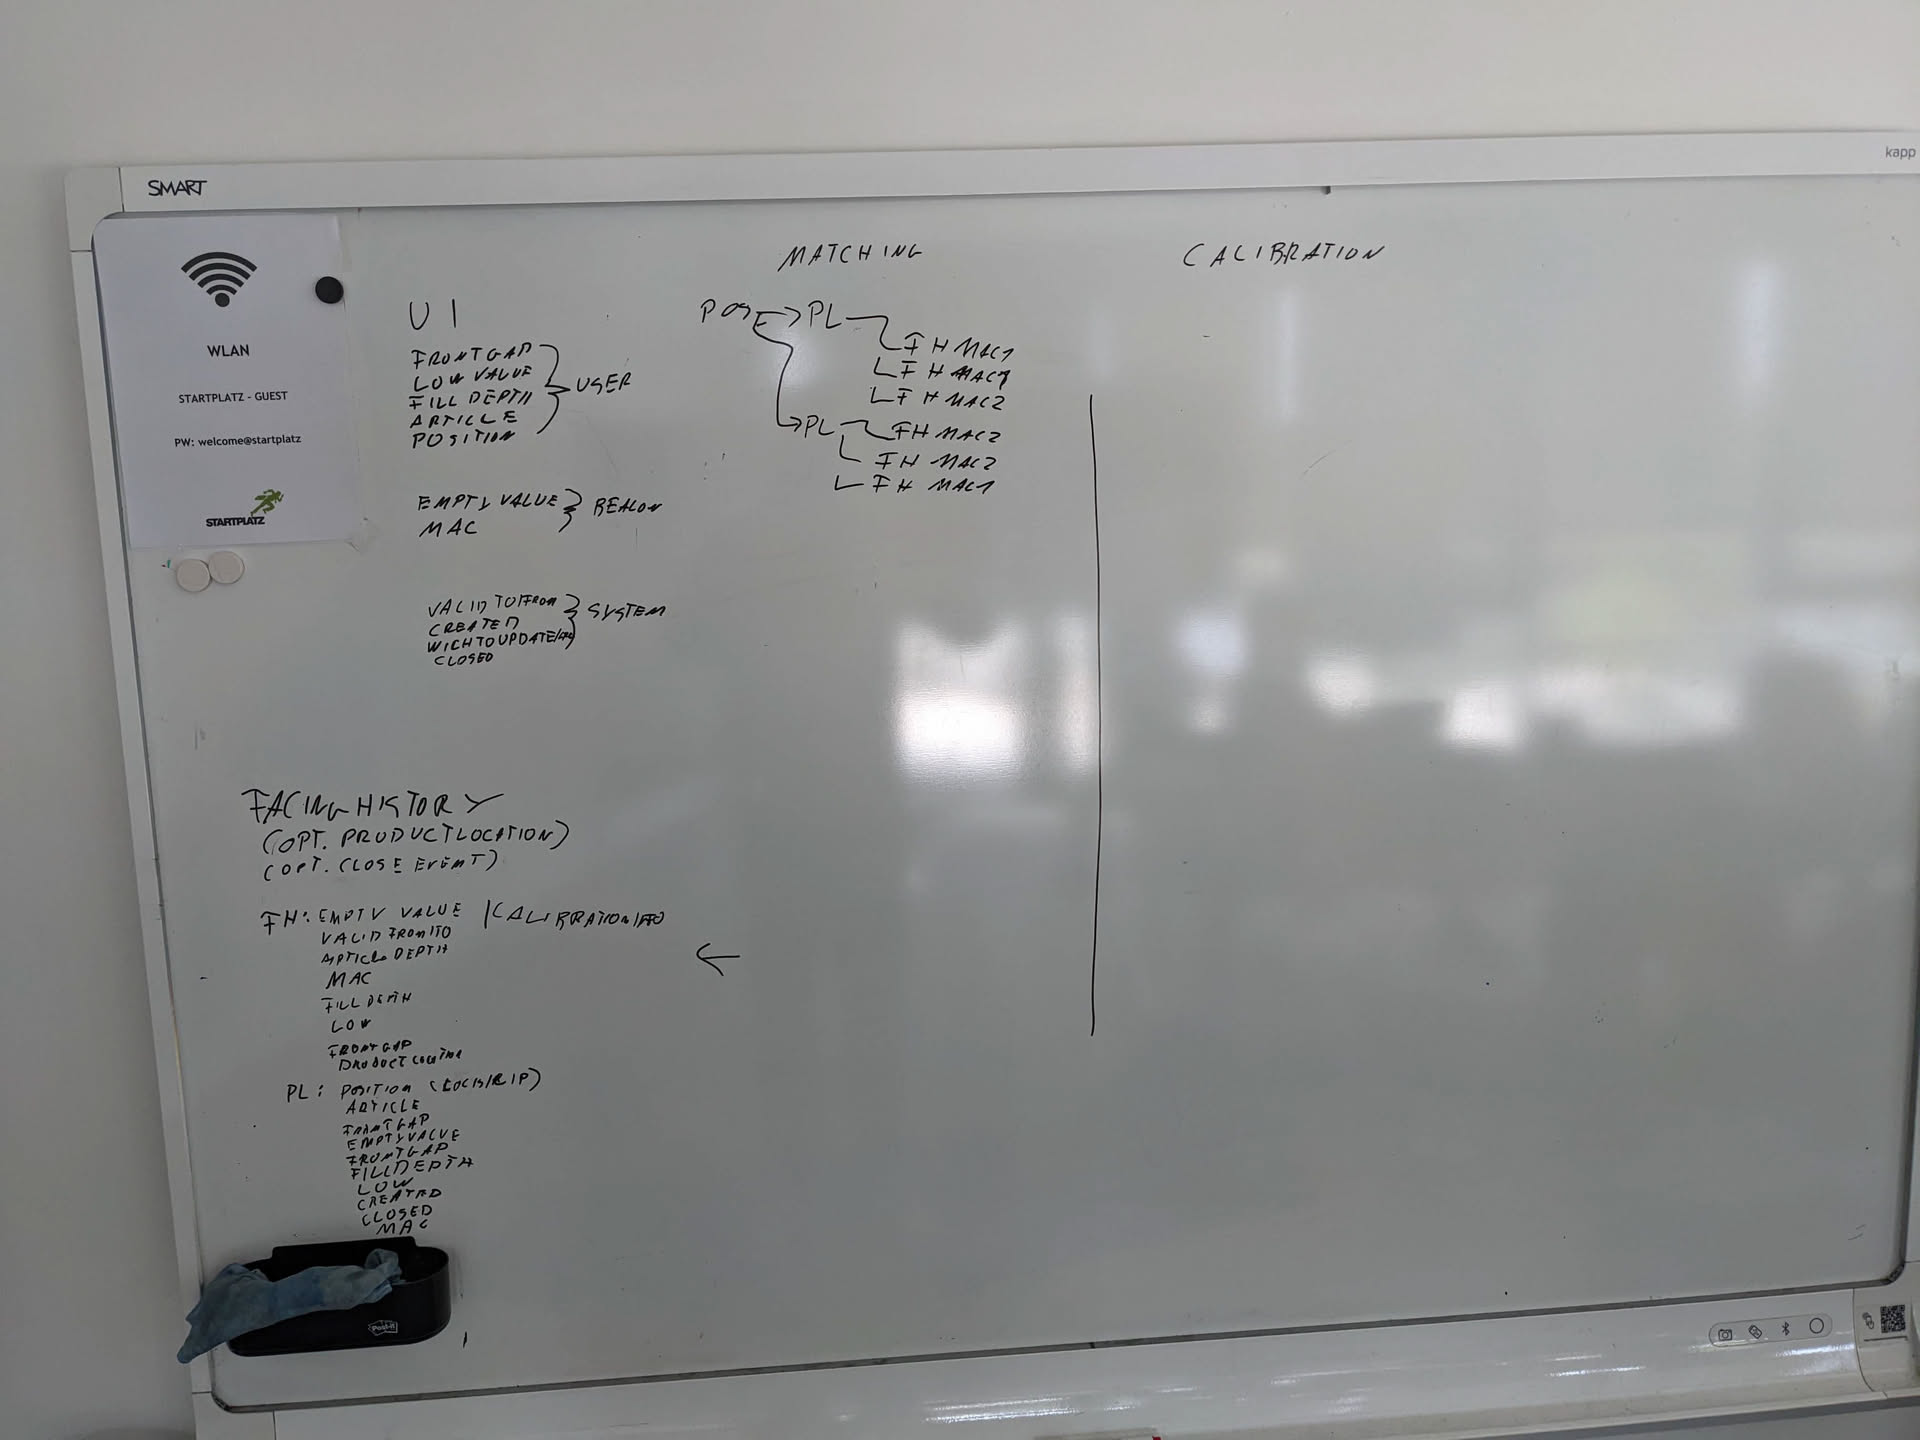 SMART
kapp
WLAN
STARTPLATZ - GUEST
PW: welcome@startplatz
STARTPLATZ
UI
FRONTGAP
LOW VALUE
FILL DEPTH
ARTICLE
POSITION
USER
EMPTY VALUE
MAC
BEACON
VALID TO/FROM
CREATED
CLOSED
SYSTEM
MATCHING
POS
PL
FH MAC1
FH MAC1
FH MAC2
PL
FH MAC2
FH MAC2
FH MAC1
CALIBRATION
FACING HISTORY
(OPT. PRODUCTLOCATION)
(OPT. CLOSE EVENT)
FH: EMPTY VALUE
VALID FROM/TO
ARTICLE DEPTH
MAC
FILL DEPTH
LOW
FRONTGAP
PL: POSITION
ARTICLE
FRONTGAP
EMPTYVALUE
FRONTGAP
FILLDEPTH
LOW
CREATED
CLOSED
MAC
Post-it